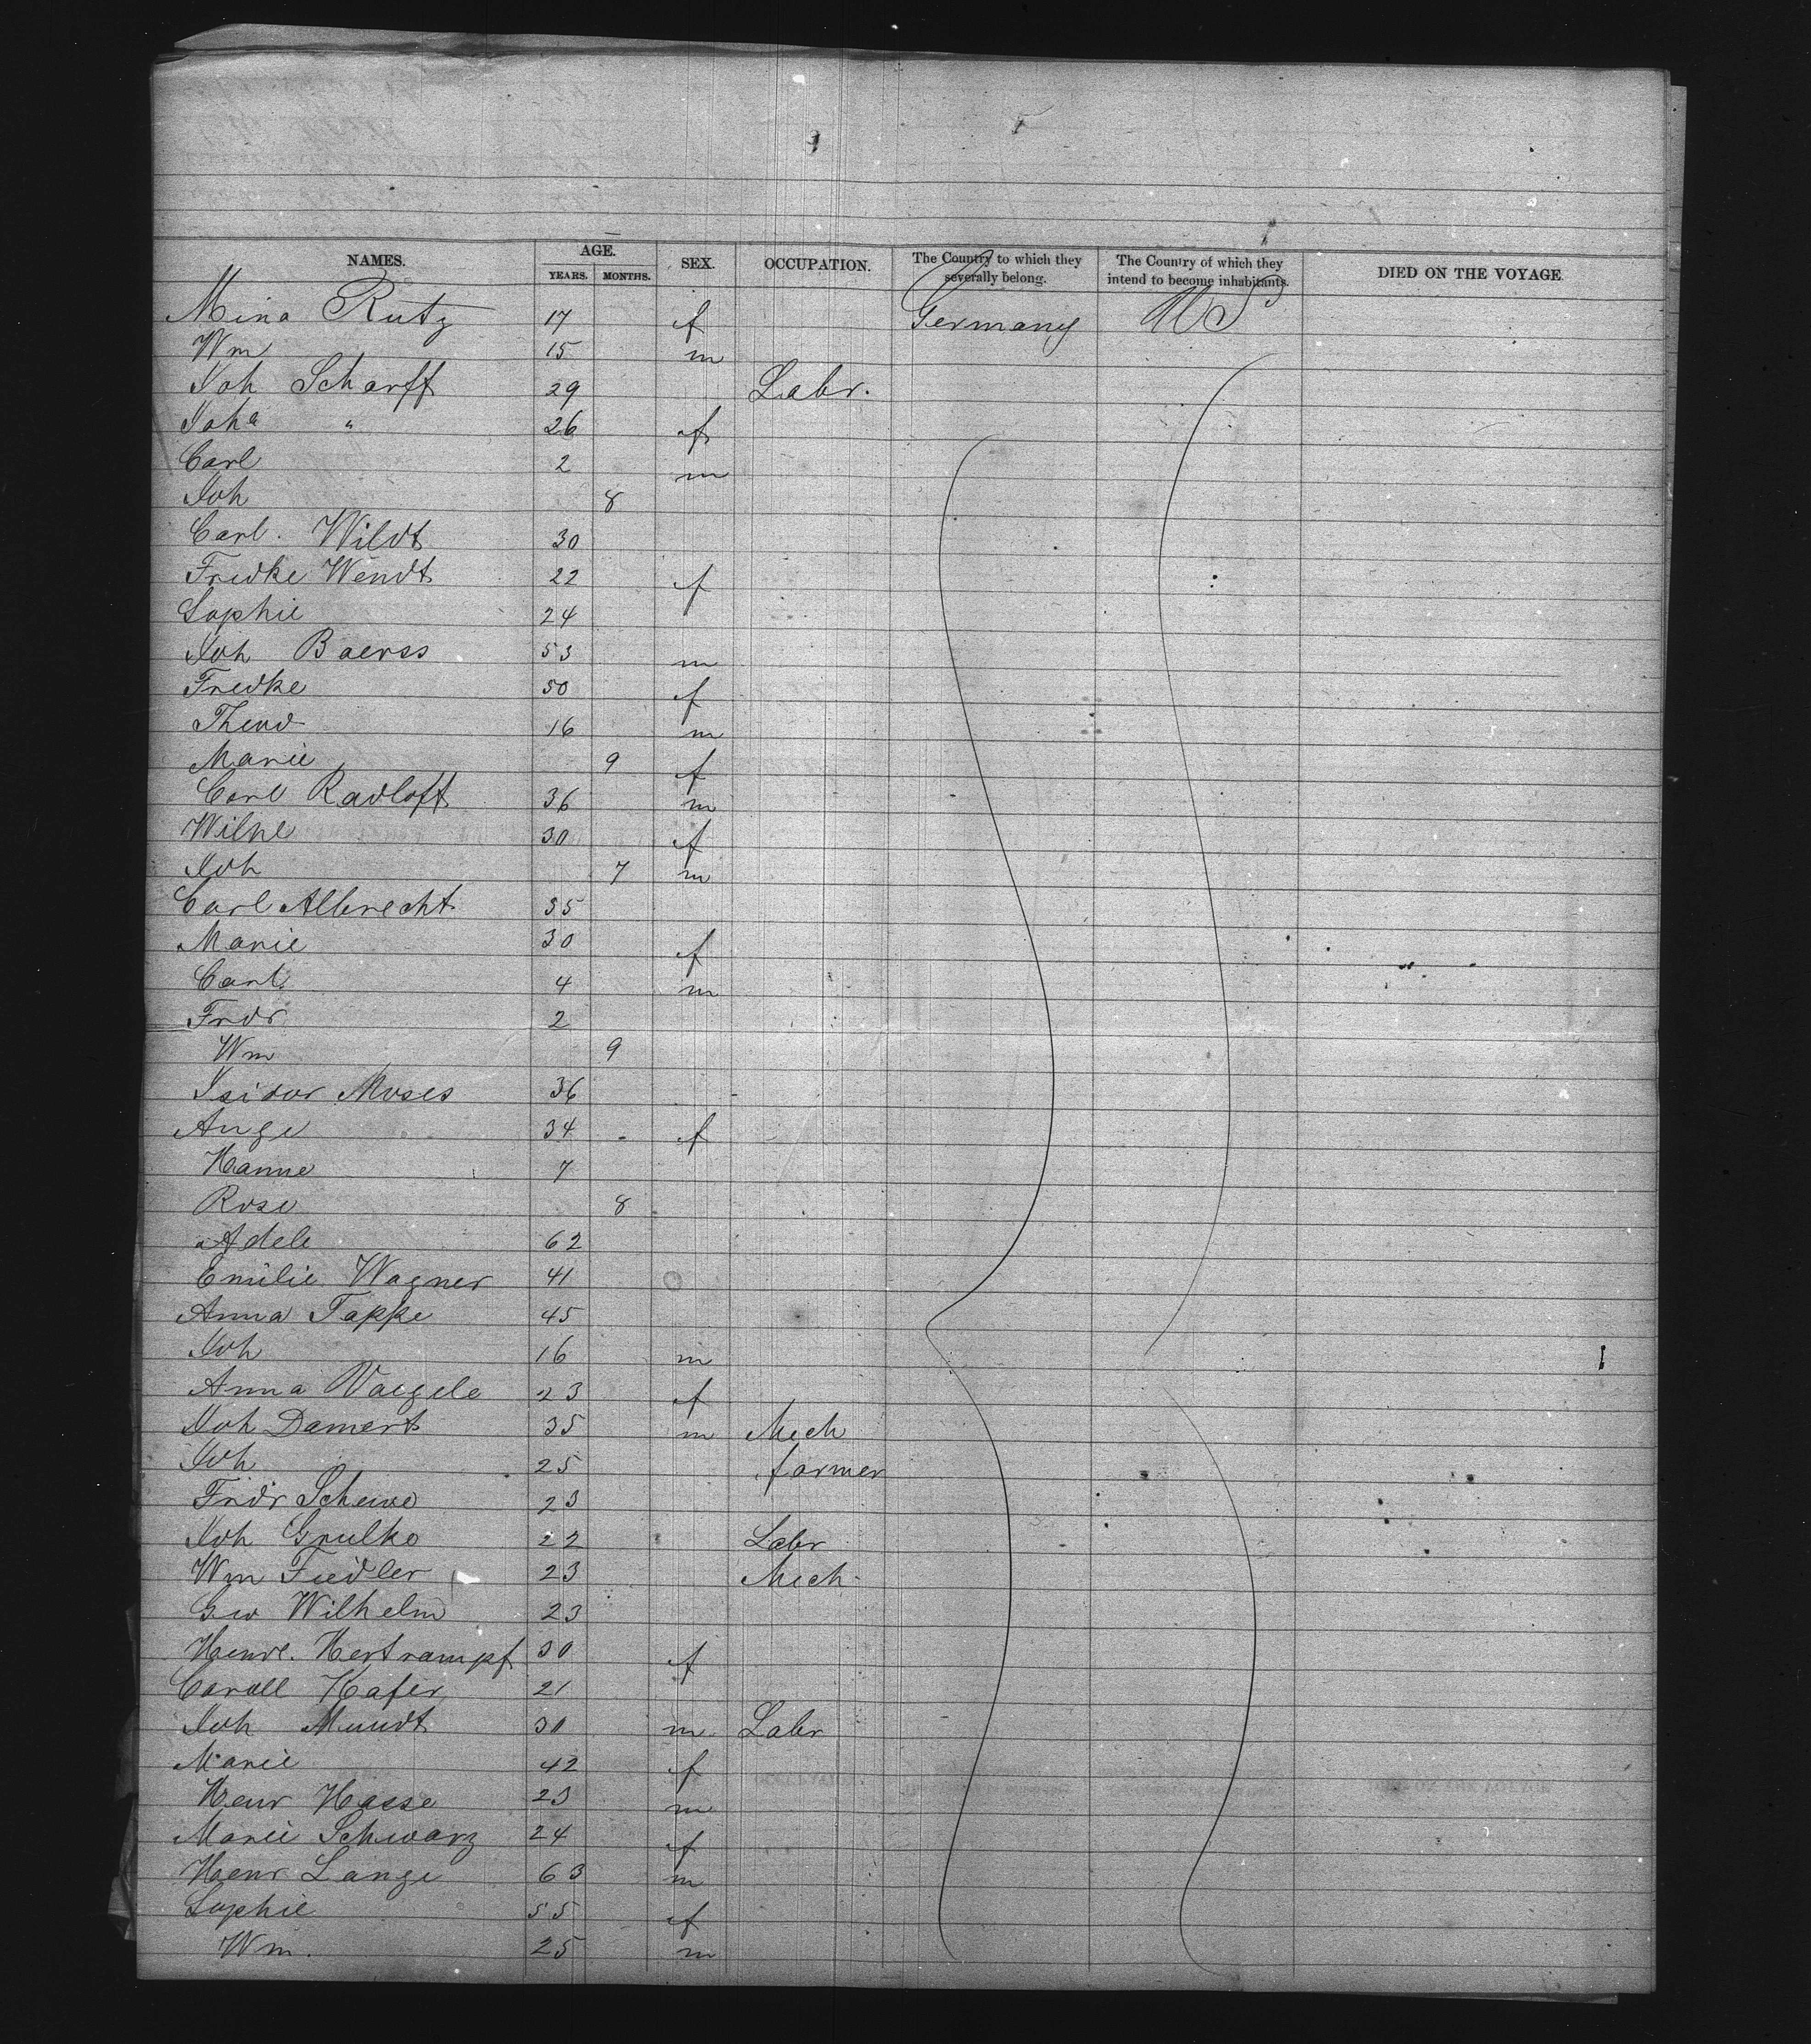 NAMES. AGE. SEX. OCCUPATION. The Country to which they severally belong. The Country of which they intend to become inhabitants. DIED ON THE VOYAGE.
YEARS. MONTHS.
Mina Rutz 17 f Germany US
Wm 15 m
Joh Scharff 29 Labr.
Joha " 26 f
Carl 2 m
Joh 8
Carl. Wildt 30
Fredke Wendt 22 f
Sophie 24
Joh Baerss 53 m
Fredke 50 f
Theod 16 m
Marie 9 f
Carl Radloff 36 m
Wilhe 30 f
Joh 7 m
Carl Albrecht 35
Marie 30 f
Carl 4 m
Fridr 2
Wm 9
Isidor Moses 36
Auge 34 f
Hanne 7
Rose 8
Adele 62
Emilie Wagner 41
Anna Tappe 45
Joh 16 m
Anna Vaegele 23 f
Joh Damert 35 m Mech
Joh 25 farmer
Fridr Schewe 23
Joh Grulko 22 Labr
Wm Fiedler 23 Mech
Geo Wilhelm 23
Henre. Hertrampf 30 f
Caroll Hafer 21
Joh Mundt 30 m Labr
Marie 42 f
Henr Haese 23 m
Marie Schwarz 24 f
Henr Lange 63 m
Sophie 55 f
Wm. 25 m